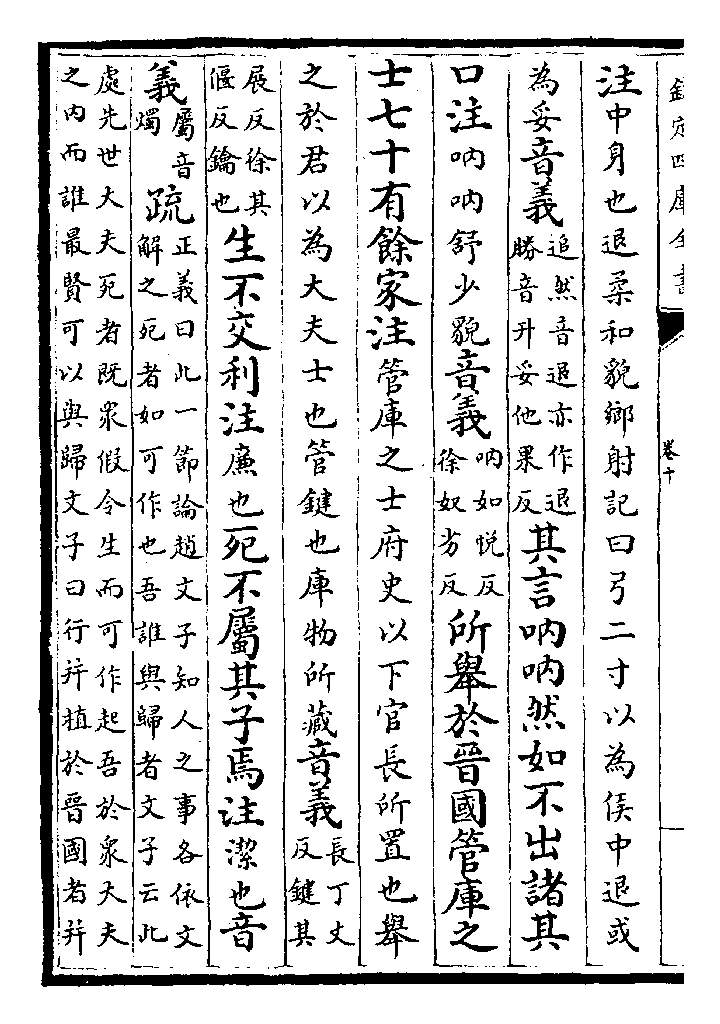 欽定四庫全書
卷十
注中身也退柔和貌鄉射記曰弓二寸以為侯中退或
為妥音義追然音退亦作退勝音升妥他果反其言吶吶然如不出諸其
口注吶吶舒少貌音義吶如悅反徐奴劣反所舉於晉國管庫之
士七十有餘家注管庫之士府史以下官長所置也舉
之於君以為大夫士也管鍵也庫物所藏音義長丁丈反鍵其
展反徐其偃反鑰也生不交利注廉也死不屬其子焉注潔也音
義屬音燭疏正義曰此一節論趙文子知人之事各依文解之死者如可作也吾誰與歸者文子云此
處先世大夫死者既眾假令生而可作起吾於眾大夫之內而誰最賢可以與歸文子曰行并植於晉國者并